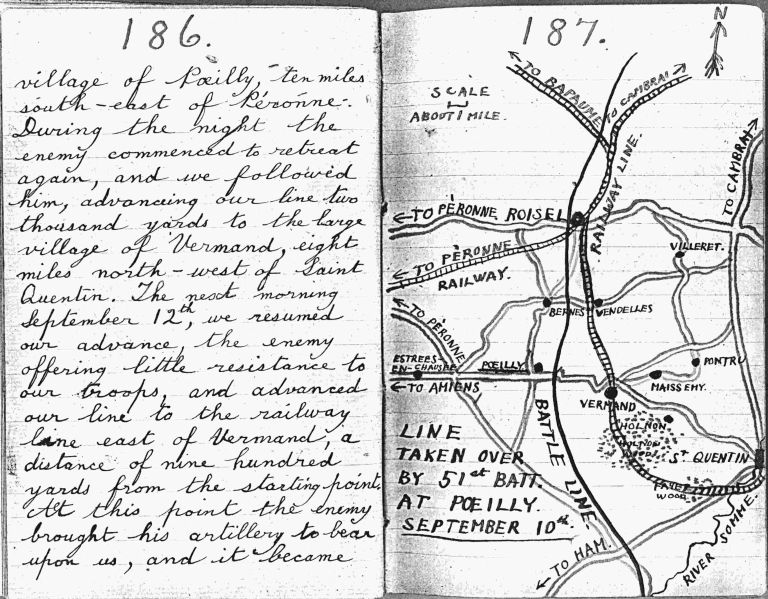 186.
village of Pœilly, ten miles
south-east of Péronne.
During the night the
enemy commenced to retreat
again, and we followed
him, advancing our line two
thousand yards to the large
village of Vermand, eight
miles north-west of Saint
Quentin. The next morning
September 12th, we resumed
our advance, the enemy
offering little resistance to
our troops, and advanced
our line to the railway
line east of Vermand, a
distance of nine hundred
yards from the starting point.
At this point the enemy
brought his artillery to bear
upon us, and it became
187.
N
SCALE
ABOUT 1 MILE.
← TO BAPAUME
TO CAMBRAI →
RAILWAY LINE.
TO CAMBRAI →
← TO PÉRONNE
ROISEL
← TO PÈRONNE
RAILWAY.
VILLERET.
← TO PÈRONNE
BERNES
VENDELLES
ESTREES-
EN-CHAUSÉE
PŒILLY.
PONTRU
← TO AMIENS
MAISSEMY.
VERMAND
HOLNON
HOLNON
WOOD
ST QUENTIN
WOOD.
BATTLE LINE
LINE
TAKEN OVER
BY 51st BATT.
AT PŒILLY.
SEPTEMBER 10th.
← TO HAM.
RIVER SOMME.